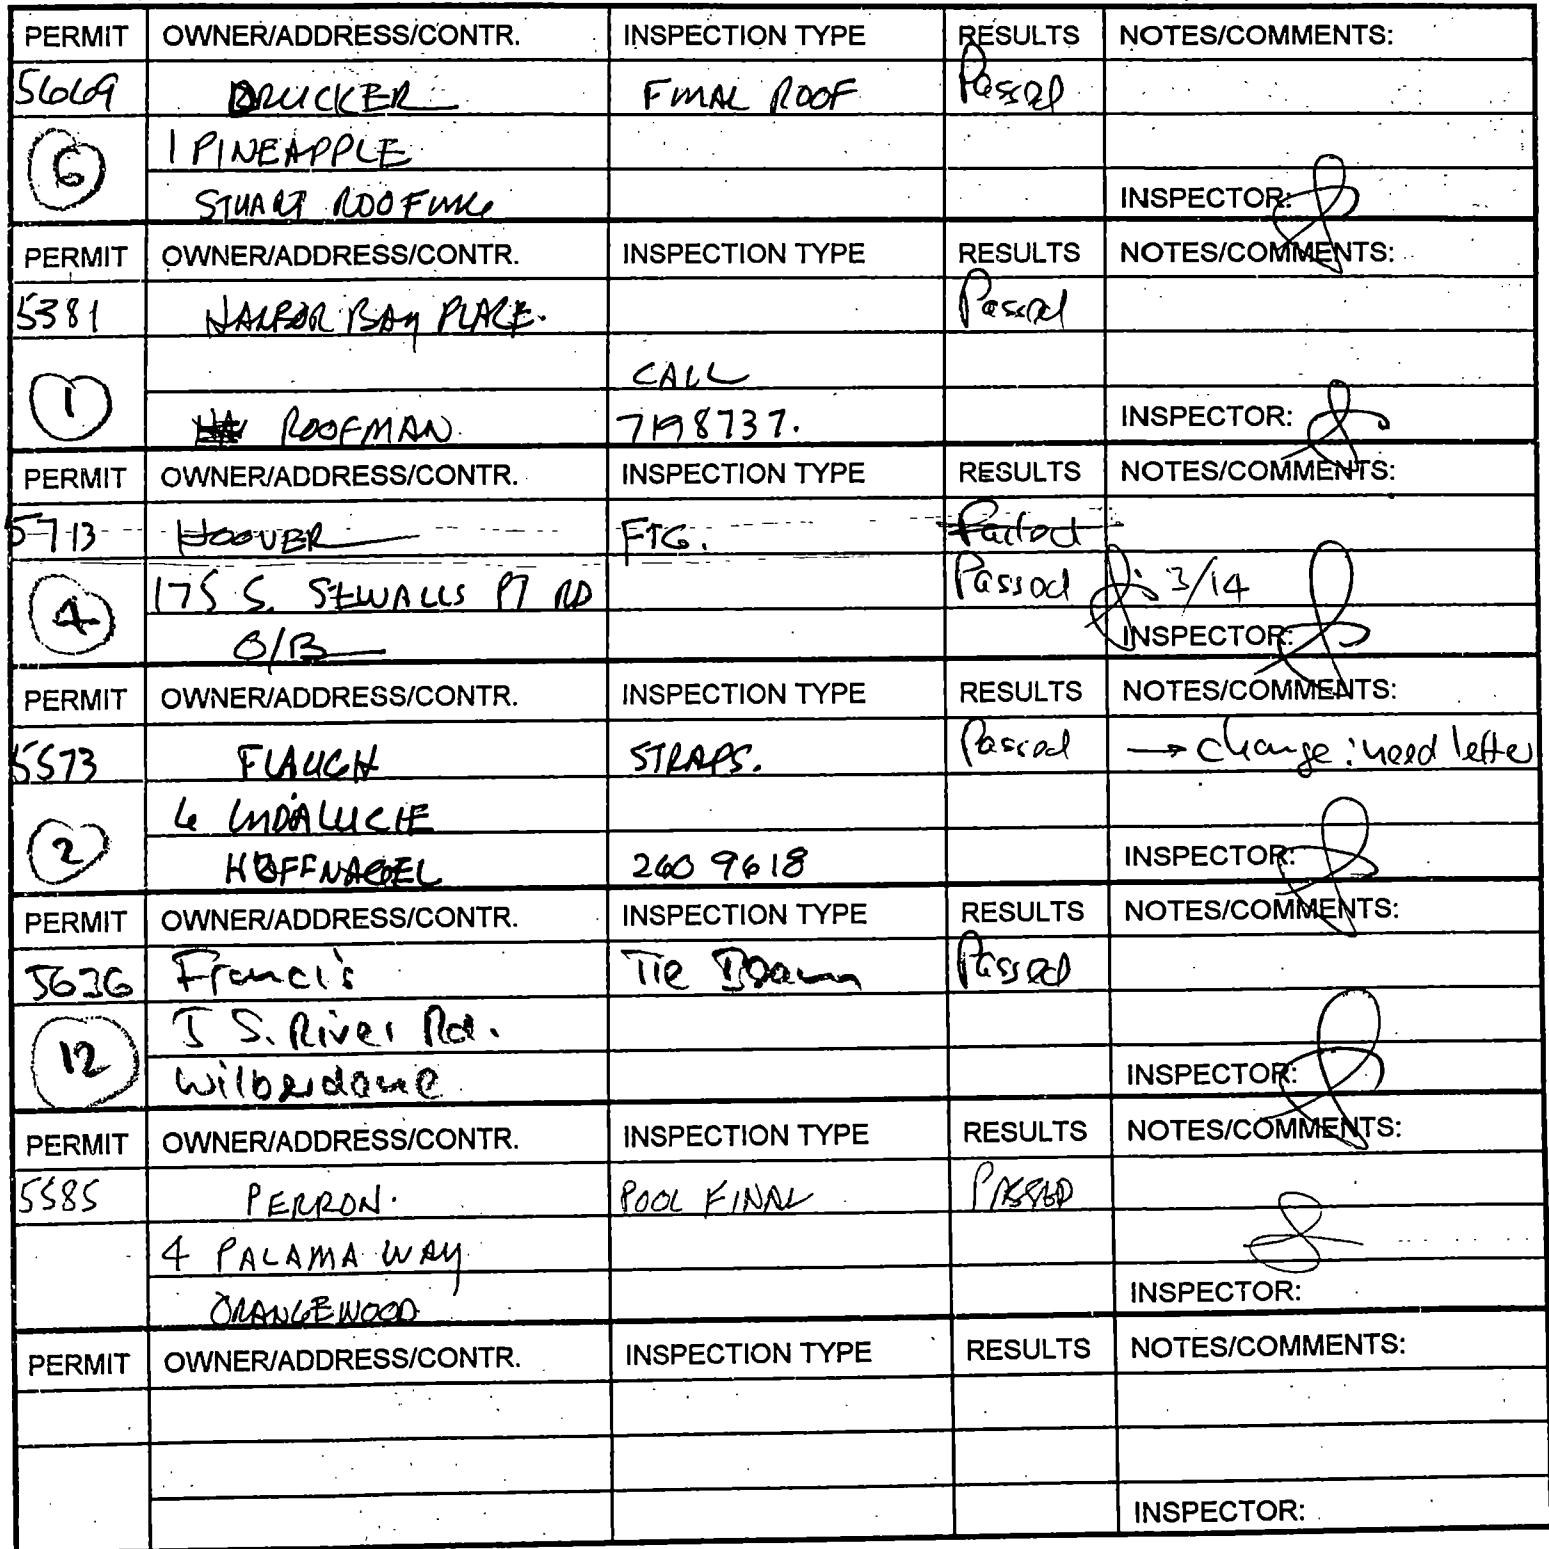 PERMIT OWNER/ADDRESS/CONTR. INSPECTION TYPE RESULTS NOTES/COMMENTS:
5669 DRUCKER FINAL ROOF Passed
6 1 PINEAPPLE
STUART ROOFING INSPECTOR:
PERMIT OWNER/ADDRESS/CONTR. INSPECTION TYPE RESULTS NOTES/COMMENTS:
5381 HARBOR BAY PLACE. Passed
1 CALL
ROOFMAN 7198737. INSPECTOR:
PERMIT OWNER/ADDRESS/CONTR. INSPECTION TYPE RESULTS NOTES/COMMENTS:
5713 HOOVER FTG. Failed
4 175 S. SEWALLS PT RD Passed 3/14
O/B INSPECTOR:
PERMIT OWNER/ADDRESS/CONTR. INSPECTION TYPE RESULTS NOTES/COMMENTS:
5573 FLAUGH STRAPS. Passed → change: need letter
2 6 INDALUCIE
HOFFNAGEL 260 9618 INSPECTOR:
PERMIT OWNER/ADDRESS/CONTR. INSPECTION TYPE RESULTS NOTES/COMMENTS:
5636 Francis Tie Beam Passed
12 5 S. River Rd.
Wilberdame INSPECTOR:
PERMIT OWNER/ADDRESS/CONTR. INSPECTION TYPE RESULTS NOTES/COMMENTS:
5585 PERRON. POOL FINAL PASSED
4 PALAMA WAY
ORANGEWOOD INSPECTOR:
PERMIT OWNER/ADDRESS/CONTR. INSPECTION TYPE RESULTS NOTES/COMMENTS:
INSPECTOR: